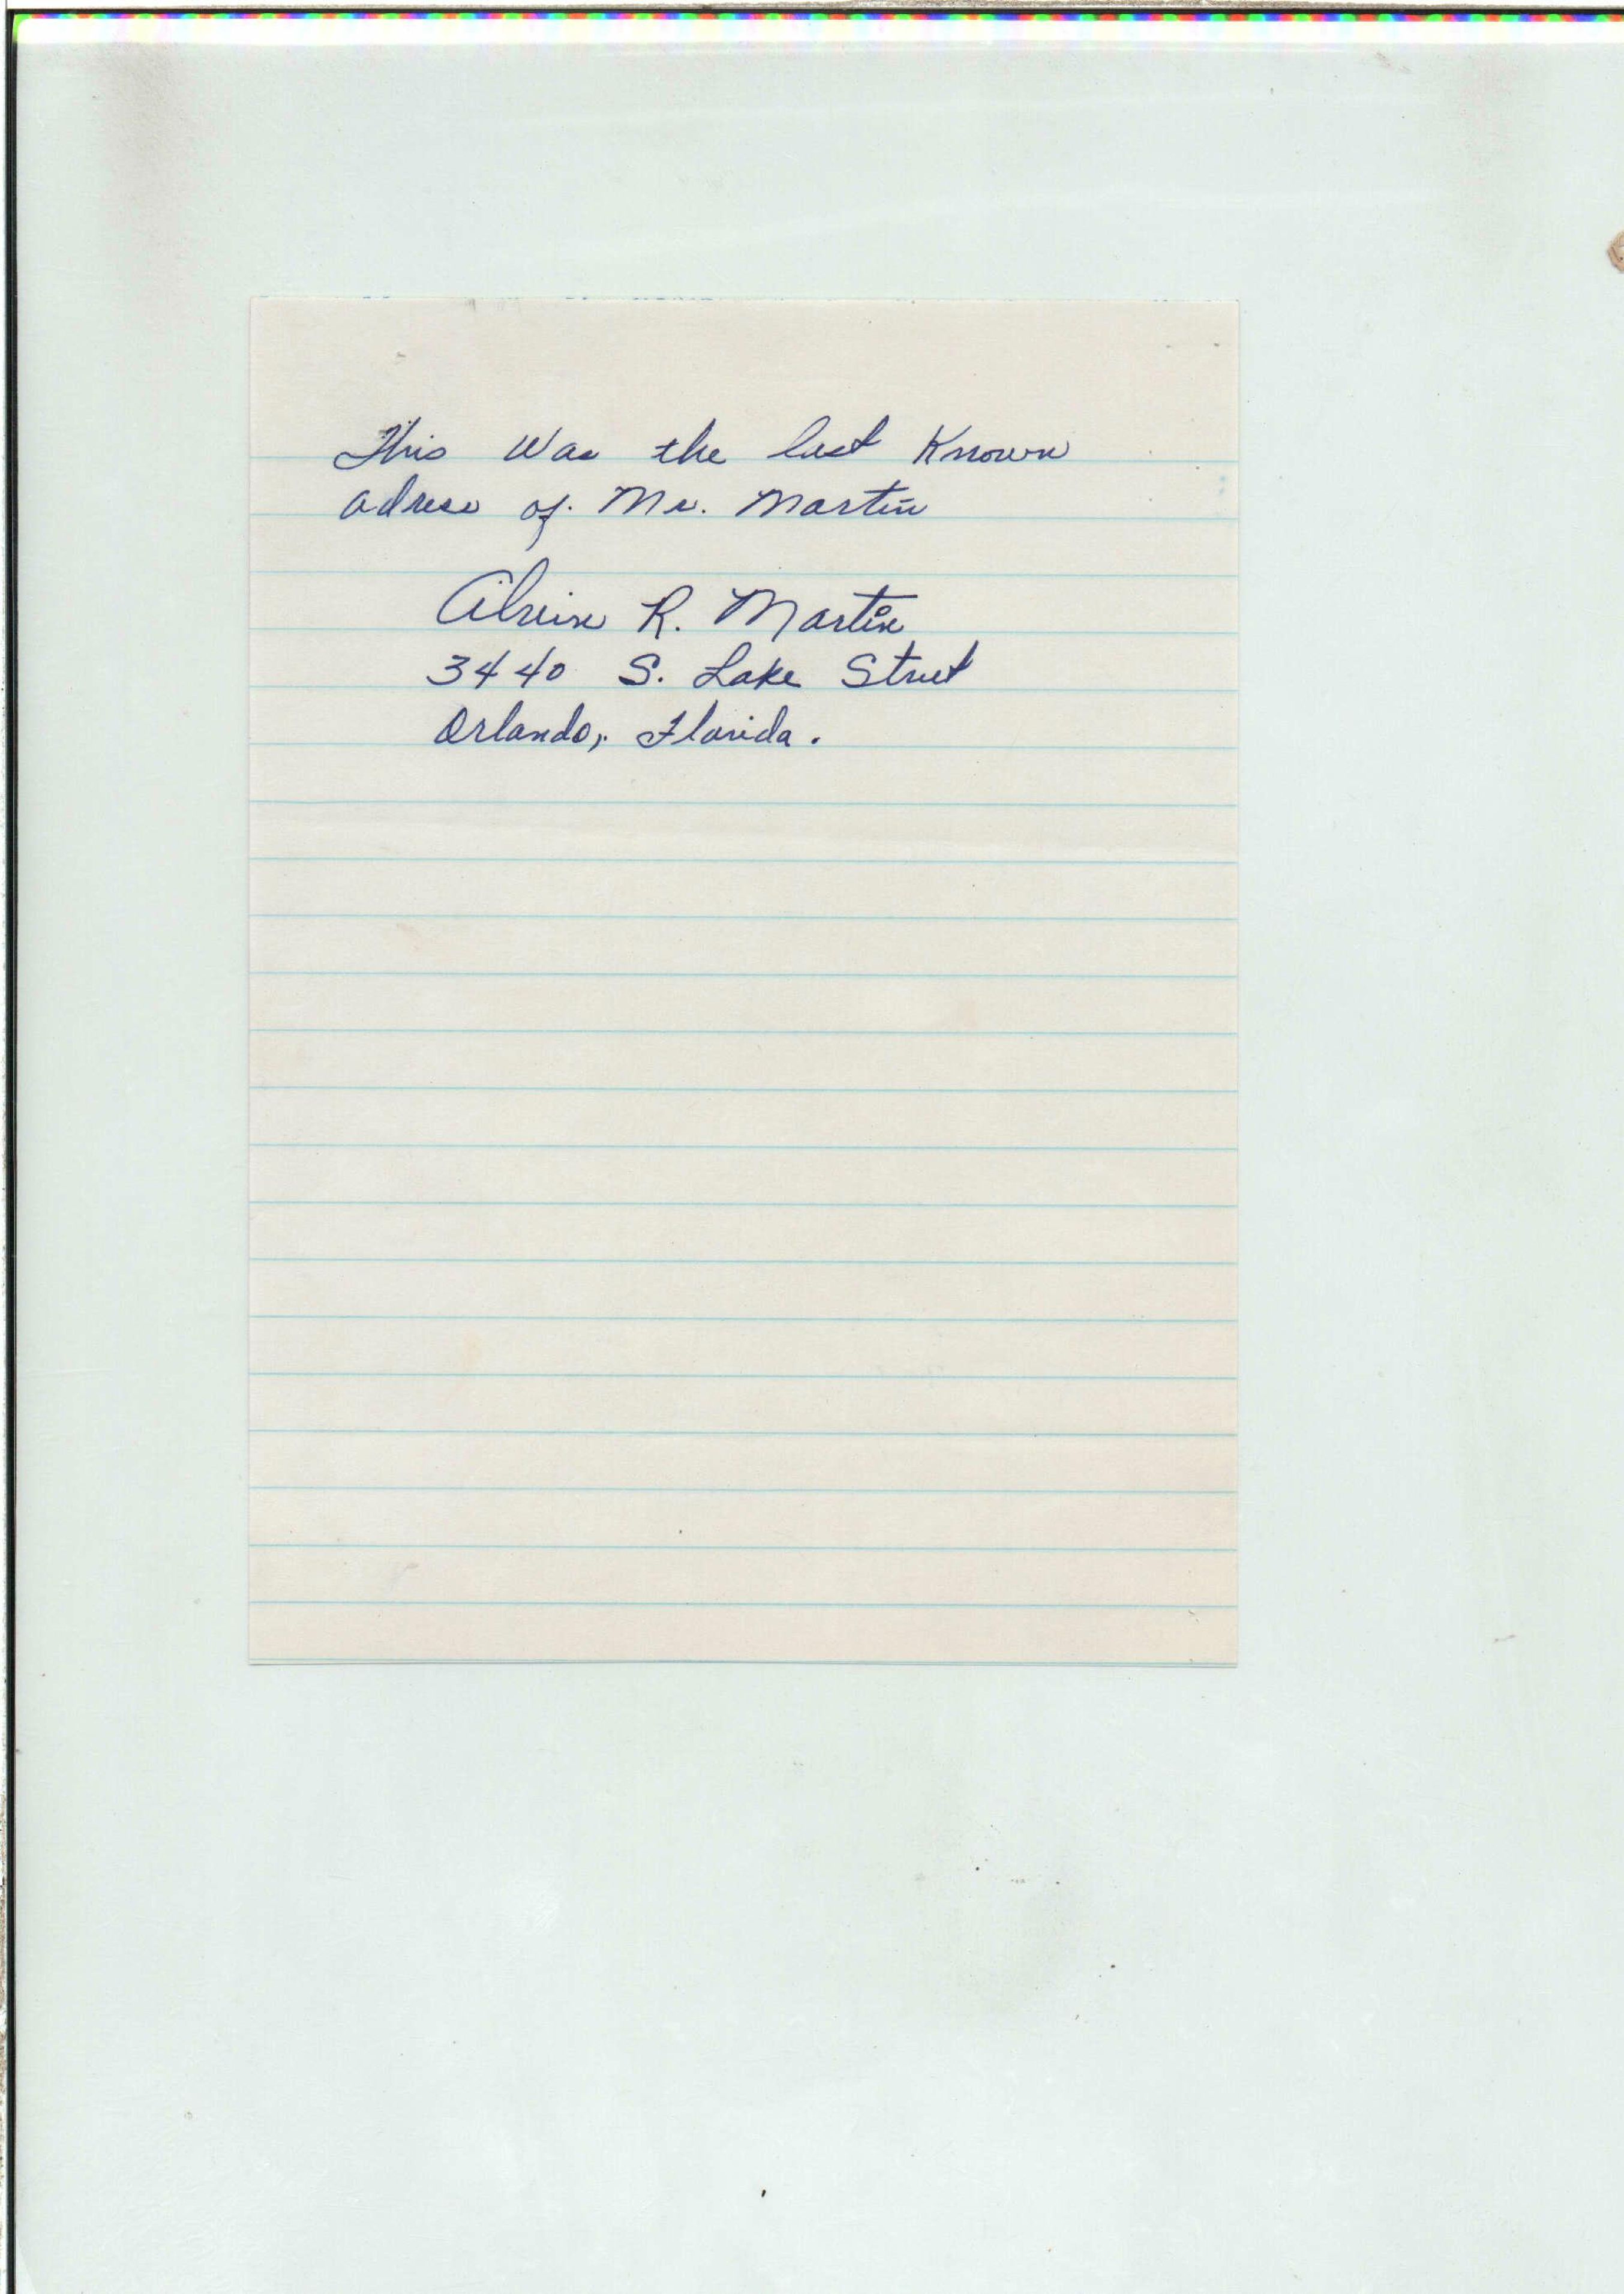 This Was the last Known
adress of Mr. Martin
Alvin R. Martin
3440 S. Lake Street
Orlando, Florida.